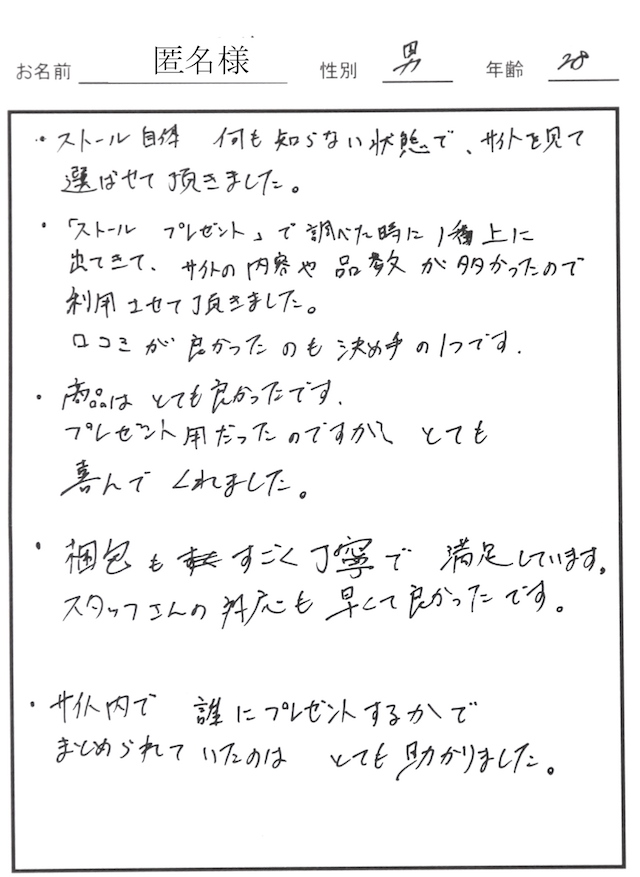 お名前 匿名様 性別 男 年齢 28
・ストール自体 何も知らない状態で、サイトを見て
選ばせて頂きました。
・「ストール プレゼント」で調べた時に1番上に
出てきて、サイトの内容や品数が多かったので
利用させて頂きました。
口コミが良かったのも決め手の1つです.
・商品はとても良かったです.
プレゼント用だったのですが、とても
喜んでくれました。
・梱包もすごく丁寧で 満足しています.
スタッフさんの対応も早くて良かったです。
・サイト内で 誰にプレゼントするかで
まとめられていたのは とても助かりました。